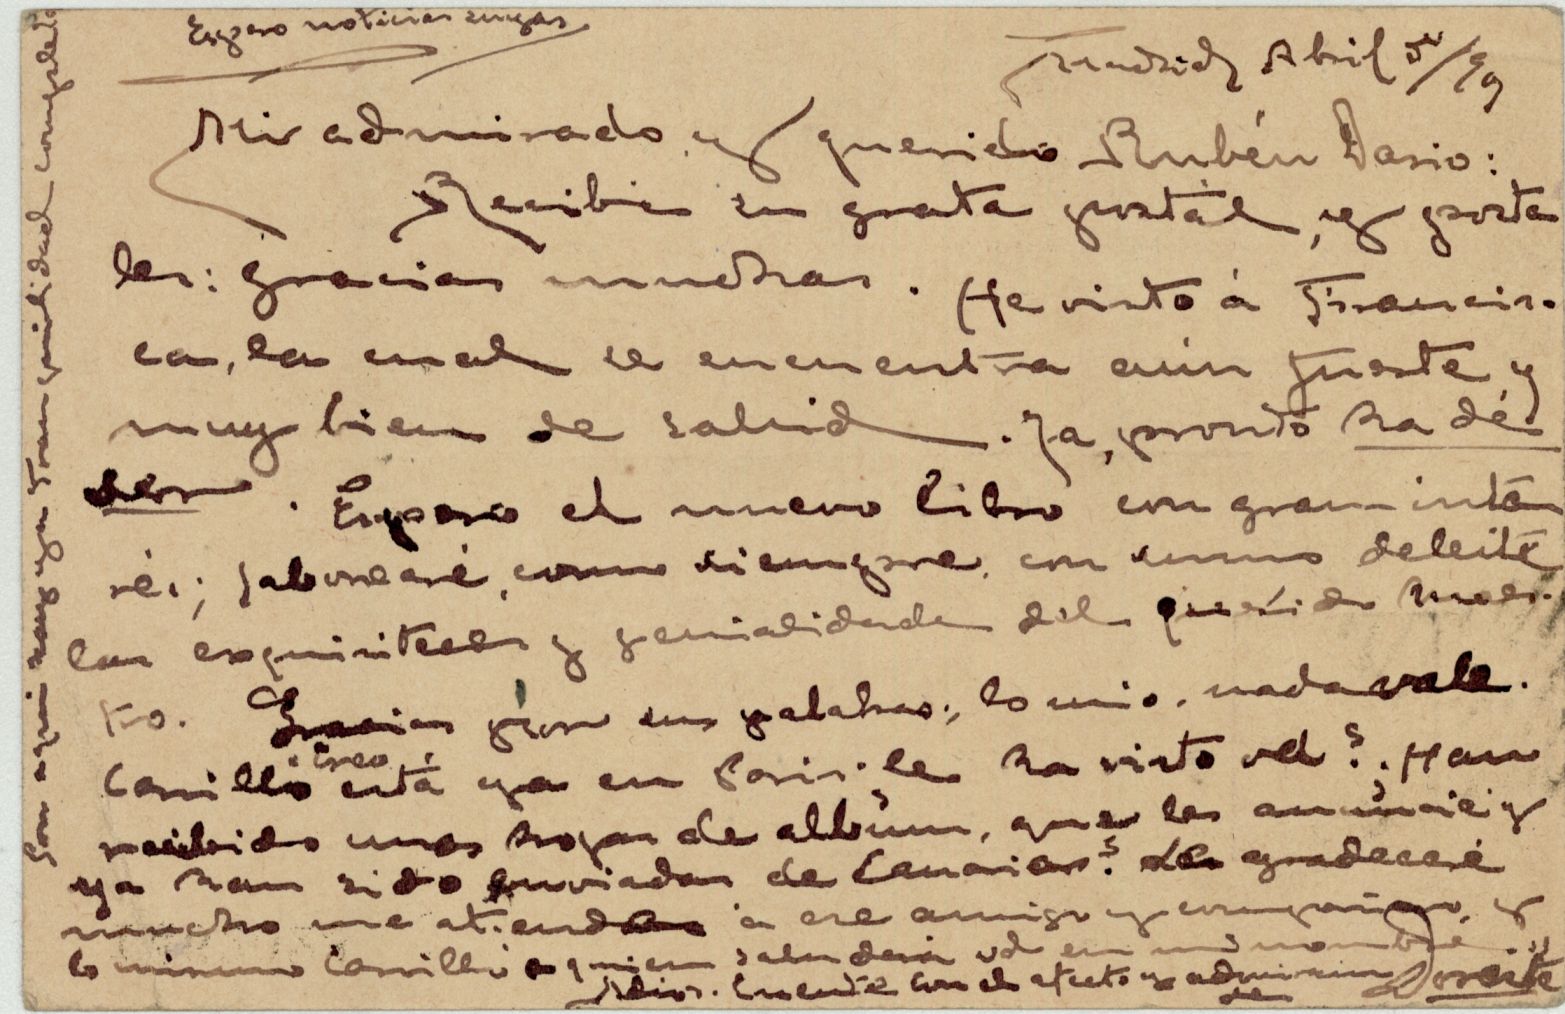 Espero noticias suyas
Madrid, Abril 5/99
Mi admirado y querido Rubén Dario:
Recibí su grata postál, y posta
les: gracias muchas. He visto á Francis-
ca, la cual se encuentra aún fuerte y
muy bien de salud. Ya, pronto ha dé
ser. Espero el nuevo libro con gran inte
rés; saborearé, como siempre, con sumo deleite
las exquisiteces y genialidades del querido Maes-
tro. Gracias por sus palabras; lo mio, nada vale.
Carrillo creo está ya en Paris. le ha visto vd? Han
recibido unas hojas de albúm, que les anuncié y
ya han sido enviadas de Canarias? Les agradeceré
mucho me atiendan á ese amigo y compañero, y
lo mismo Carrillo á quien saludará vd en mi nombre.
Adios. Cuente con el afecto y admiración
de Doreste
Por aqui hay ya tranquilidad completa